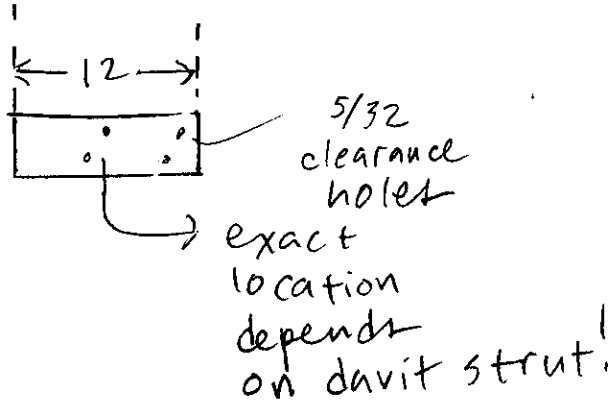 12
5/32
clearance
holes
exact
location
depends
on davit strut!